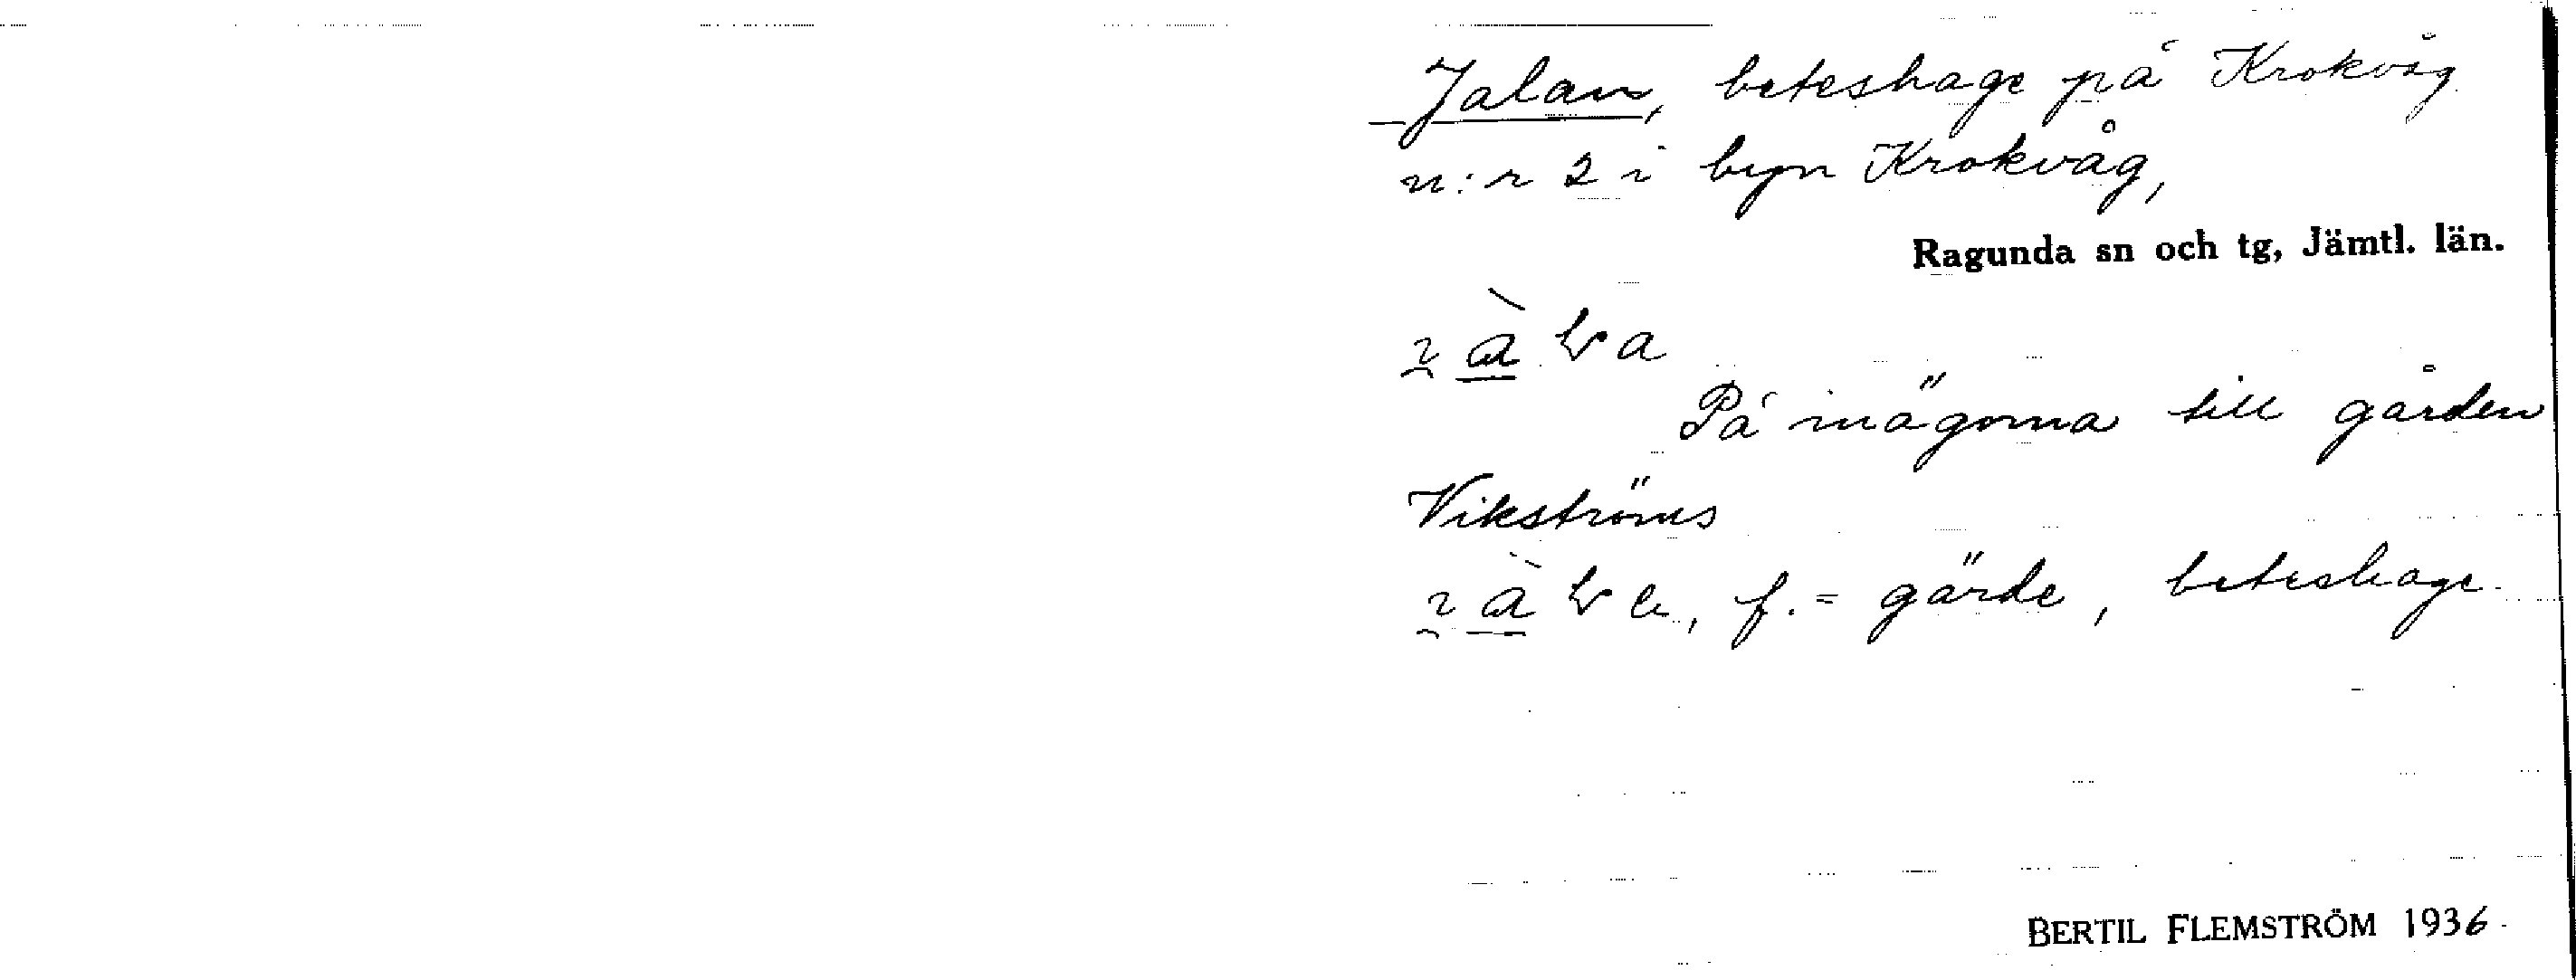 Jalan, beteshage på Krokvåg
n:r 2 i byn Krokvåg,
Ragunda sn och tg, Jämtl. län.
På inägorna till gården
Vikströms
f. = gärde, beteshage
BERTIL FLEMSTRÖM 1936